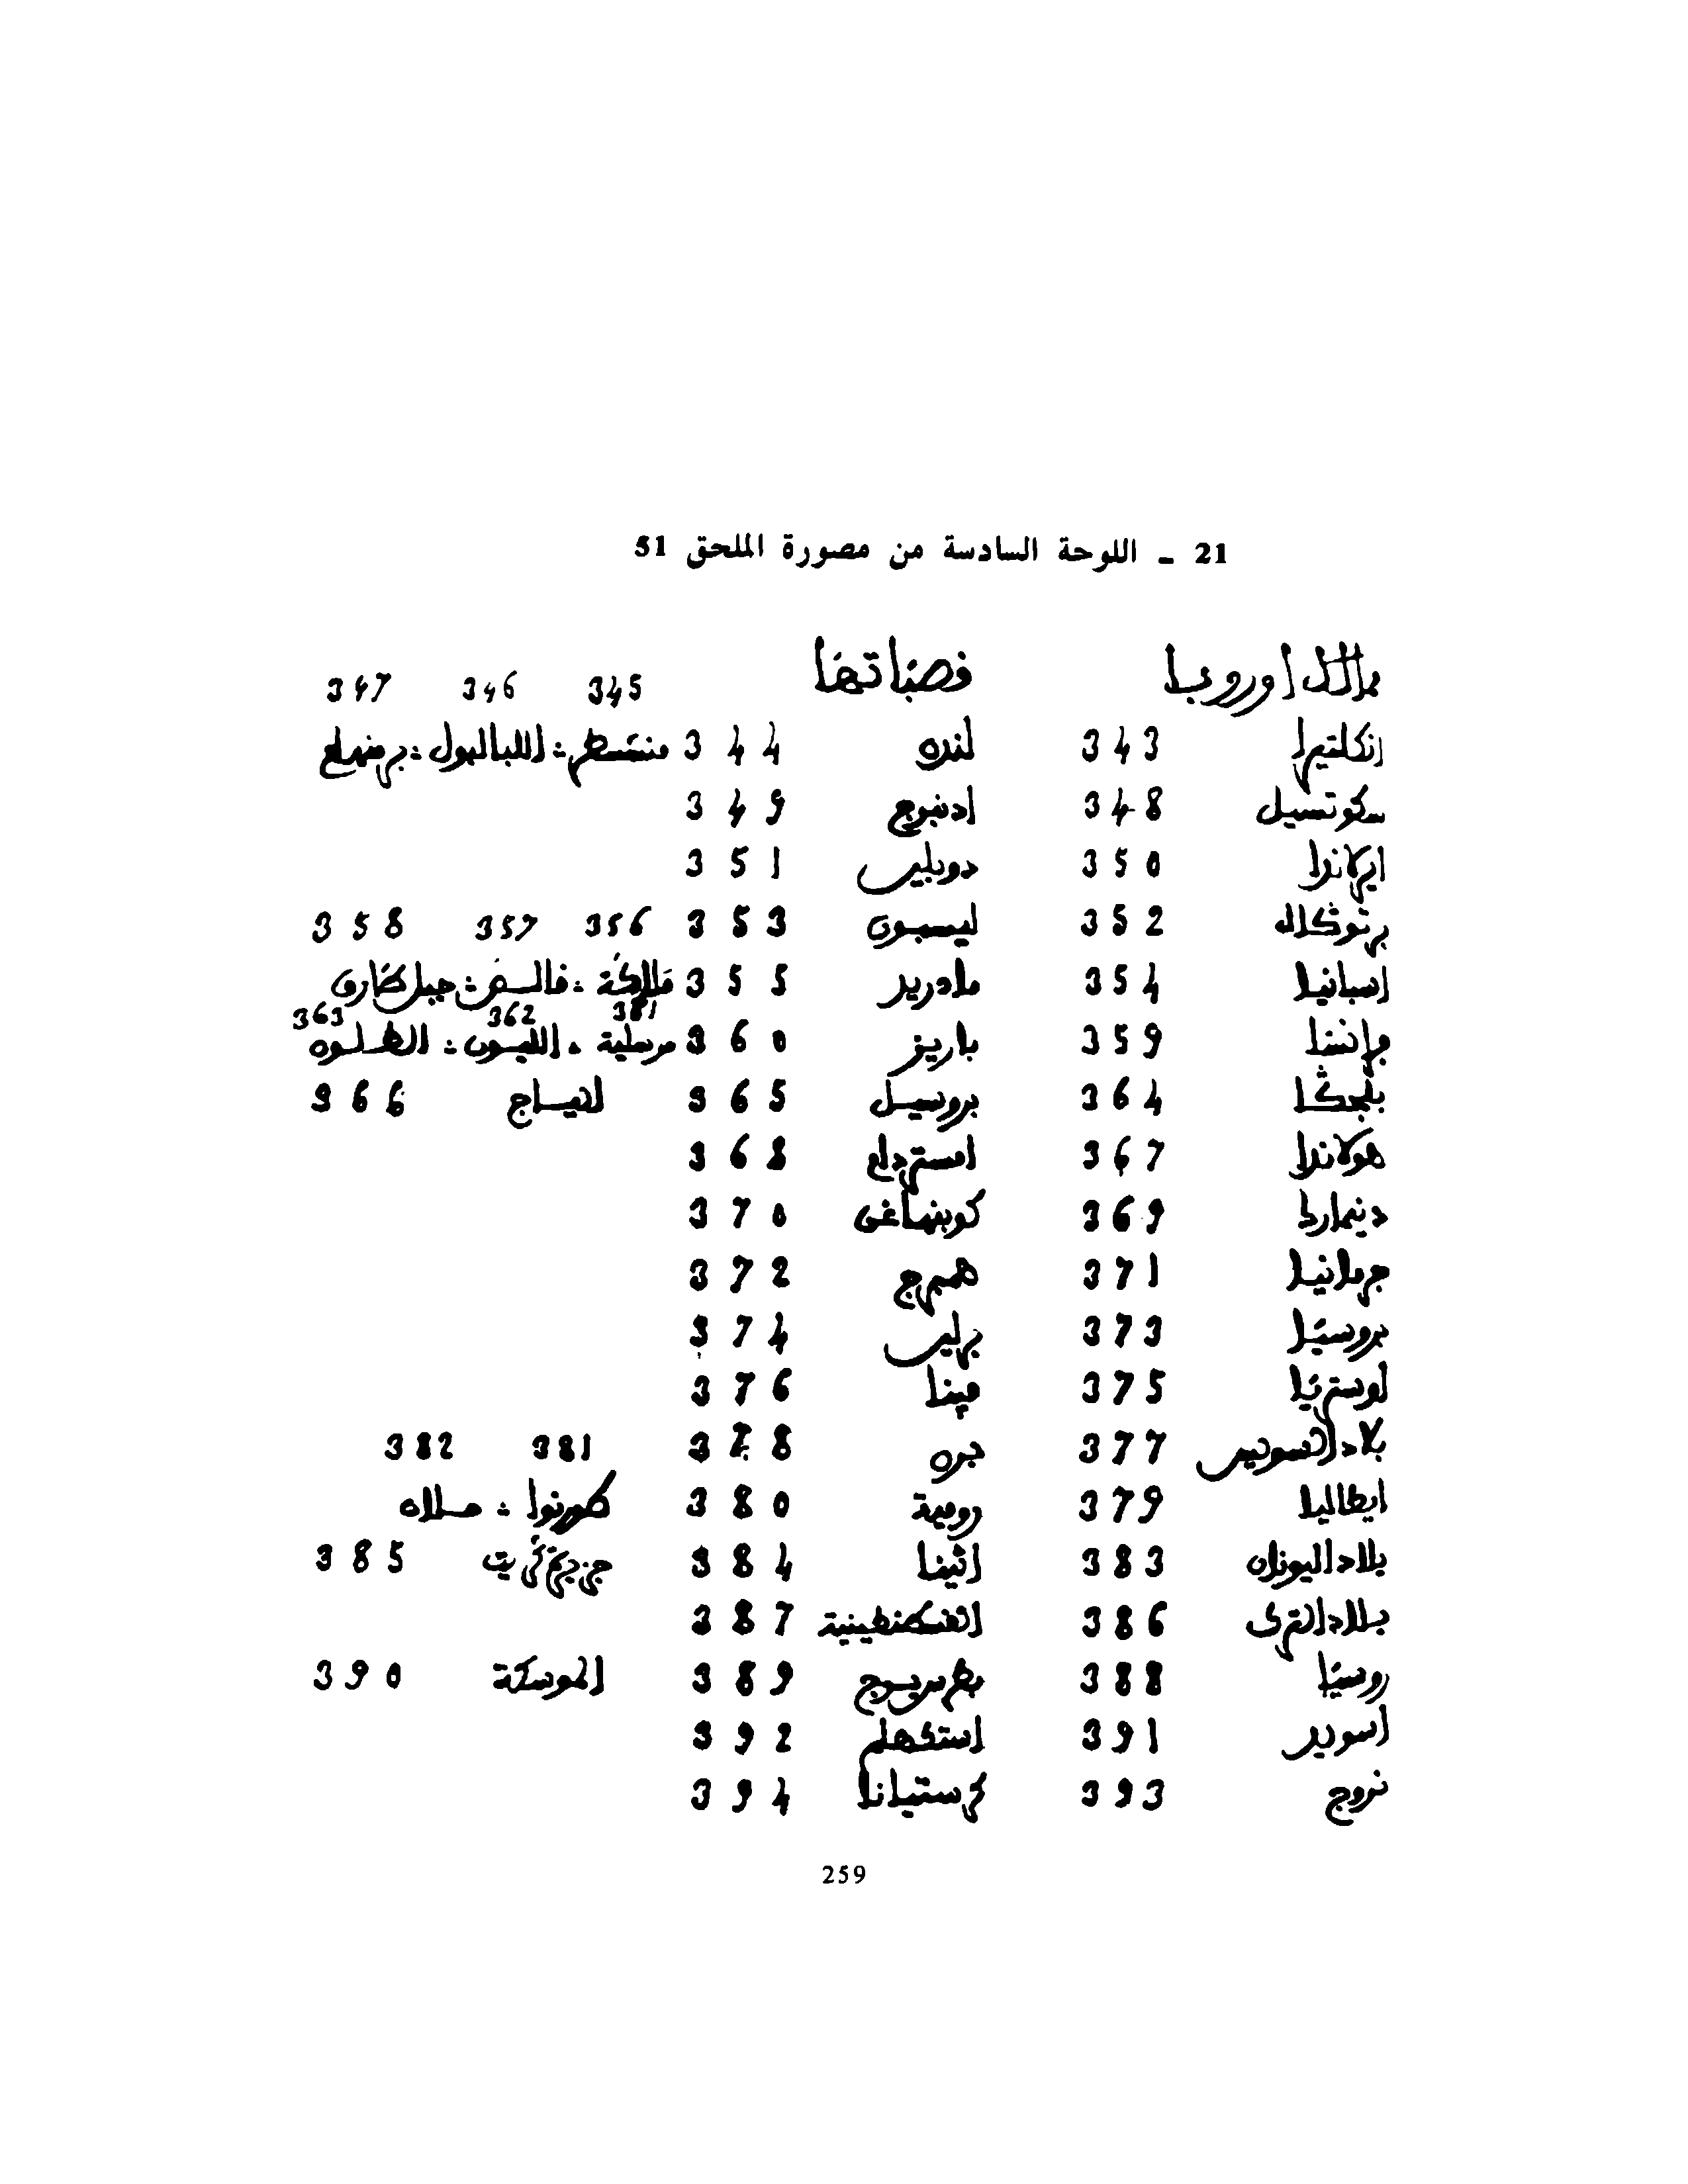 21 ـ اللوحة السادسة من مصورة الملحق 51
ممالك اوروبا قصباتها 345 346 347
انكلتيرا 343 لندره 344 منتشطر : اللبالبول : برمنهام
سكوتسيل 348 ادنبرج 349
ايرلاندا 350 دوبلين 351
برتوكال 352 ليسبون 353 356 357 358
اسبانيا 354 مادريد 355 مالكة : قالس : جبل طارق
361 362 363
فرانسا 359 باريز 360 مرسلية . الليون :
بلجكا 364 بروسيل 365 لاهياج 366
هولاندا 367 امستردام 368
دينمارك 369 كوبنهاغن 370
جرمانيا 371 همبرج 372
بروسيا 373 برلين 374
اوستريا 375 فينا 376
بلاد السويس 377 بره 378 381 382
ايطاليا 379 رومية 380 طورنوا : ميلان
بلاد اليونان 383 اثينا 384 جزيرة كريت 385
بلاد الترك 386 القسطنطينية 387
روسيا 388 بطرسبرج 389 الموسكة 390
اسويد 391 استكهلم 392
نروج 393 كرستيانا 394
259